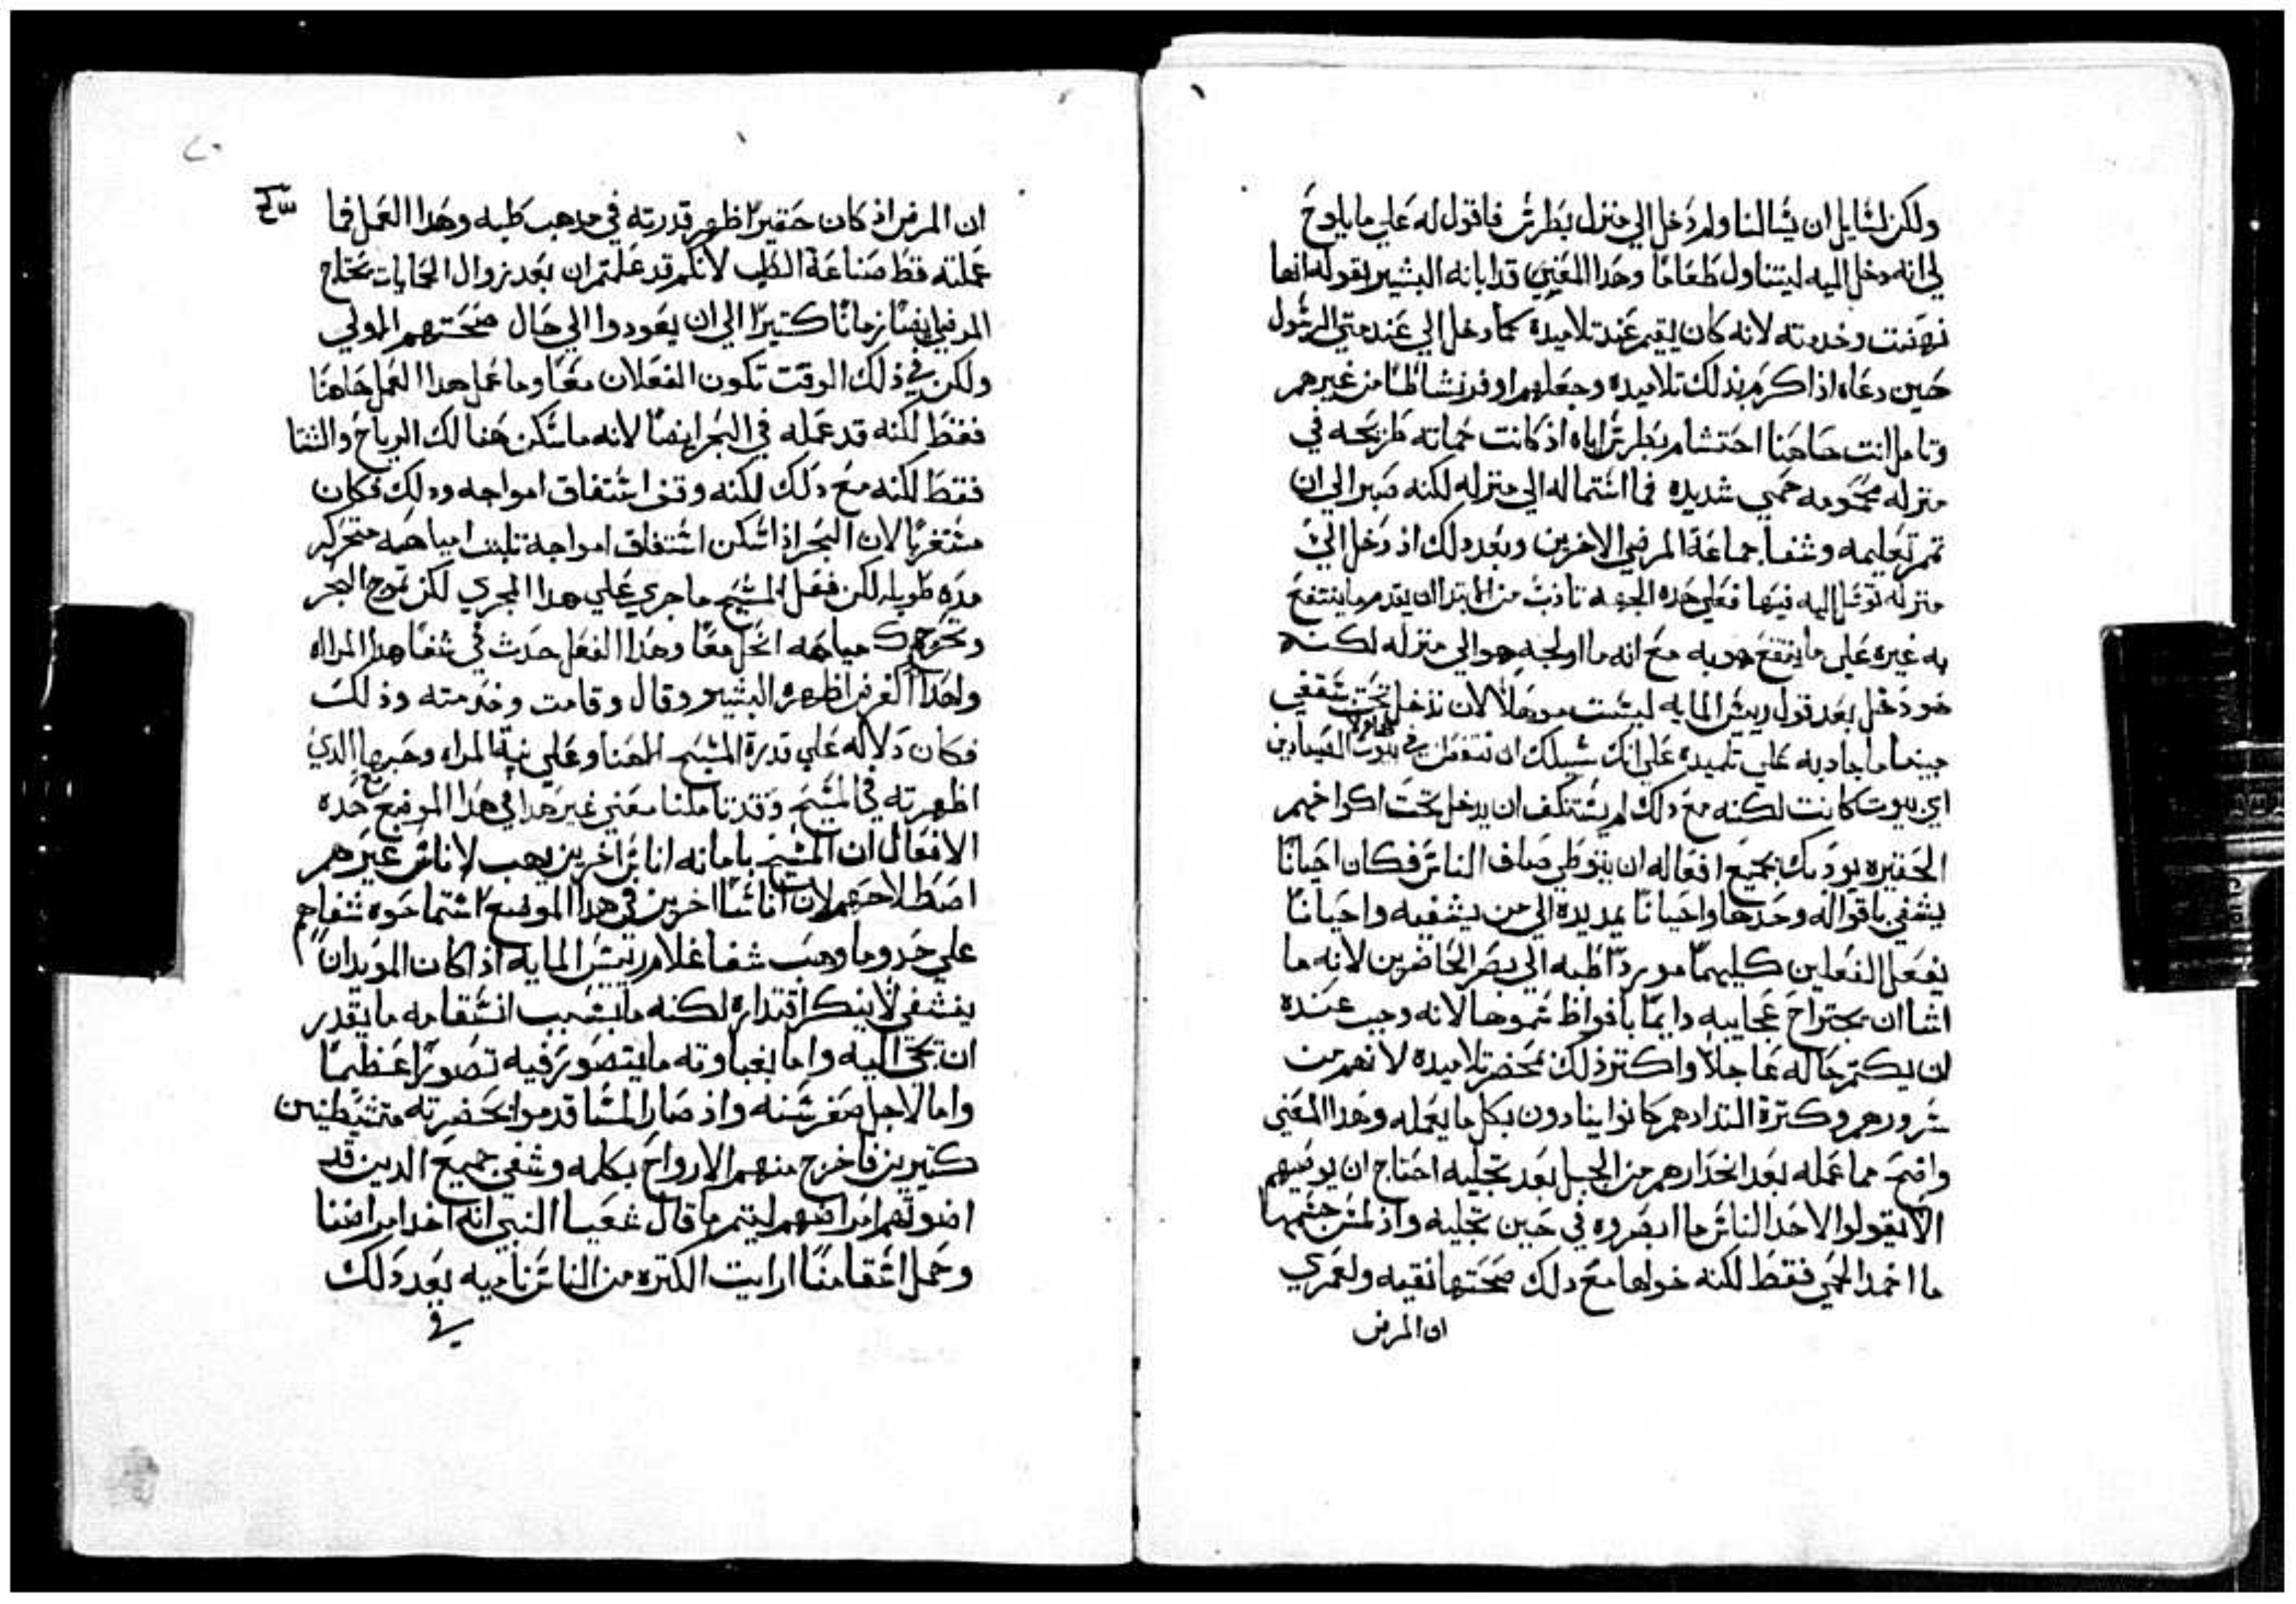 ولكن لسايل ان يسالنا ولم دخل الي منزل بطرس فاقول له علي ما يلوح
لي انه دخل اليه ليتناول طعاما وهدا المعني قد ابانه البشير بقوله انها
نهضت وخدمته لانه كان يقيم عند تلاميده كما دخل الي عند متي الرسول
حين دعاه اذ اكرم بدلك تلاميده وجعلهم اوفر نشاطا من غيرهم
وتامل انت هاهنا احتشام بطرس اياه اذ كانت حماته طريحه في
منزله محمومه حمي شديده فما استماله الي منزله لكنه صبر الي ان
تمم تعليمه وشفا جماعة المرضي الاخرين وبعد دلك اذ دخل الي
منزله توسل اليه فيها فعلي هده الجهه تادب من الابتدا ان يقدم ما ينتفع
به غيره علي ما ينتفع هو به مع انه ما اولجه هو الي منزله لكنه
هو دخل بعد قول رييس المايه ليست موهلا لان تدخل تحت سقفي
مبينا ما جاد به علي تلميده علي انك سبيلك ان تتفطن في بيوت هاولا الصيادين
اي بيوت كانت لكنه مع دلك لم يستنكف ان يدخل تحت اكواخهم
الحقيره يودبك بجميع افعاله ان يتوطي صلف الناس فكان احيانا
يشفي باقواله وحدها واحيانا يمد يده الي من يشفيه واحيانا
يفعل الفعلين كليهما موردا طبه الي بصر الحاضرين لانه ما
اشا ان يجتراح عجايبه دايما بافراط سموها لانه وجب عنده
ان يكتم حاله عاجلا واكتر ذلك بمحضر تلاميده لانهم من
سرورهم وكترة التدادهم كانوا ينادون بكل ما يعمله وهدا المعني
واضح مما عمله بعد انحدارهم من الجبل بعد تجليه احتاج ان يوصيهم
الا يقولوا لاحد الناس ما ابصروه في حين تجليه واذ لمس جسمها
ما اخمد الحمي فقط لكنه خولها مع دلك صحتها نقيه ولعمري
ان المرض
ان المرض اذ كان حقيرا اظهر قدرته في مدهب طبه وهدا العمل فما
عملته فقط صناعة الطب لانكم قد علمتم ان بعد زوال الحمايات تحتاج
المرضي ايضا زمانا كتيرا الي ان يعودوا الي حال صحتهم الاولي
ولكن في ذلك الوقت تكون الفعلان معا وما عمل هدا العمل هاهنا
فقط لكنه قد عمله في البحر ايضا لانه ما سكن هنالك الرياح والشتا
فقط لكنه مع دلك لكنه وقف اشتفاق امواجه ودلك فكان
مستغربا لان البحر اذا سكن اشتفاق امواجه تلبت امياهه متحركه
مده طويله لكن فعل المسيح ما جري علي هدا المجري لكن تموج البحر
وتحرك مياهه انحل معا وهدا الفعل حدث في شفا هده المراه
ولهدا الغرض اظهره البشير وقال وقامت وخدمته وذلك
فكان دلاله علي قدرة المسيح الهنا وعلي نية المراه وخبرها الدي
اظهرته في المسيح وقد تاملنا معني غير هدا في هدا الموضع مع هده
الافعال ان المسيح بامانه اناس اخرين يهب لاناس غيرهم
اصطلاحهم لان اناسا اخرين في هدا الموضع استماحوه شفاهم
علي حد وما وهب شفا غلام رييس المايه اذا كان المويدان
يشفي لا ينكر اقتداره لكنه ما بسبب انسقامه ما يقدر
ان يجي اليه واما بغباوته ما يتصور فيه تصورا عظيما
واما لاجل صغر سنه واذ صار المسا قدموا بحضرته متشيطنين
كتيرين فاخرج منهم الارواح بكلمه وشفي جميع الدين قد
اضوتهم امراضهم ليتم ما قال شعيا النبي انه اخد امراضنا
وحمل اسقامنا ارايت الكتره من الناس ناميه بعد دلك
في